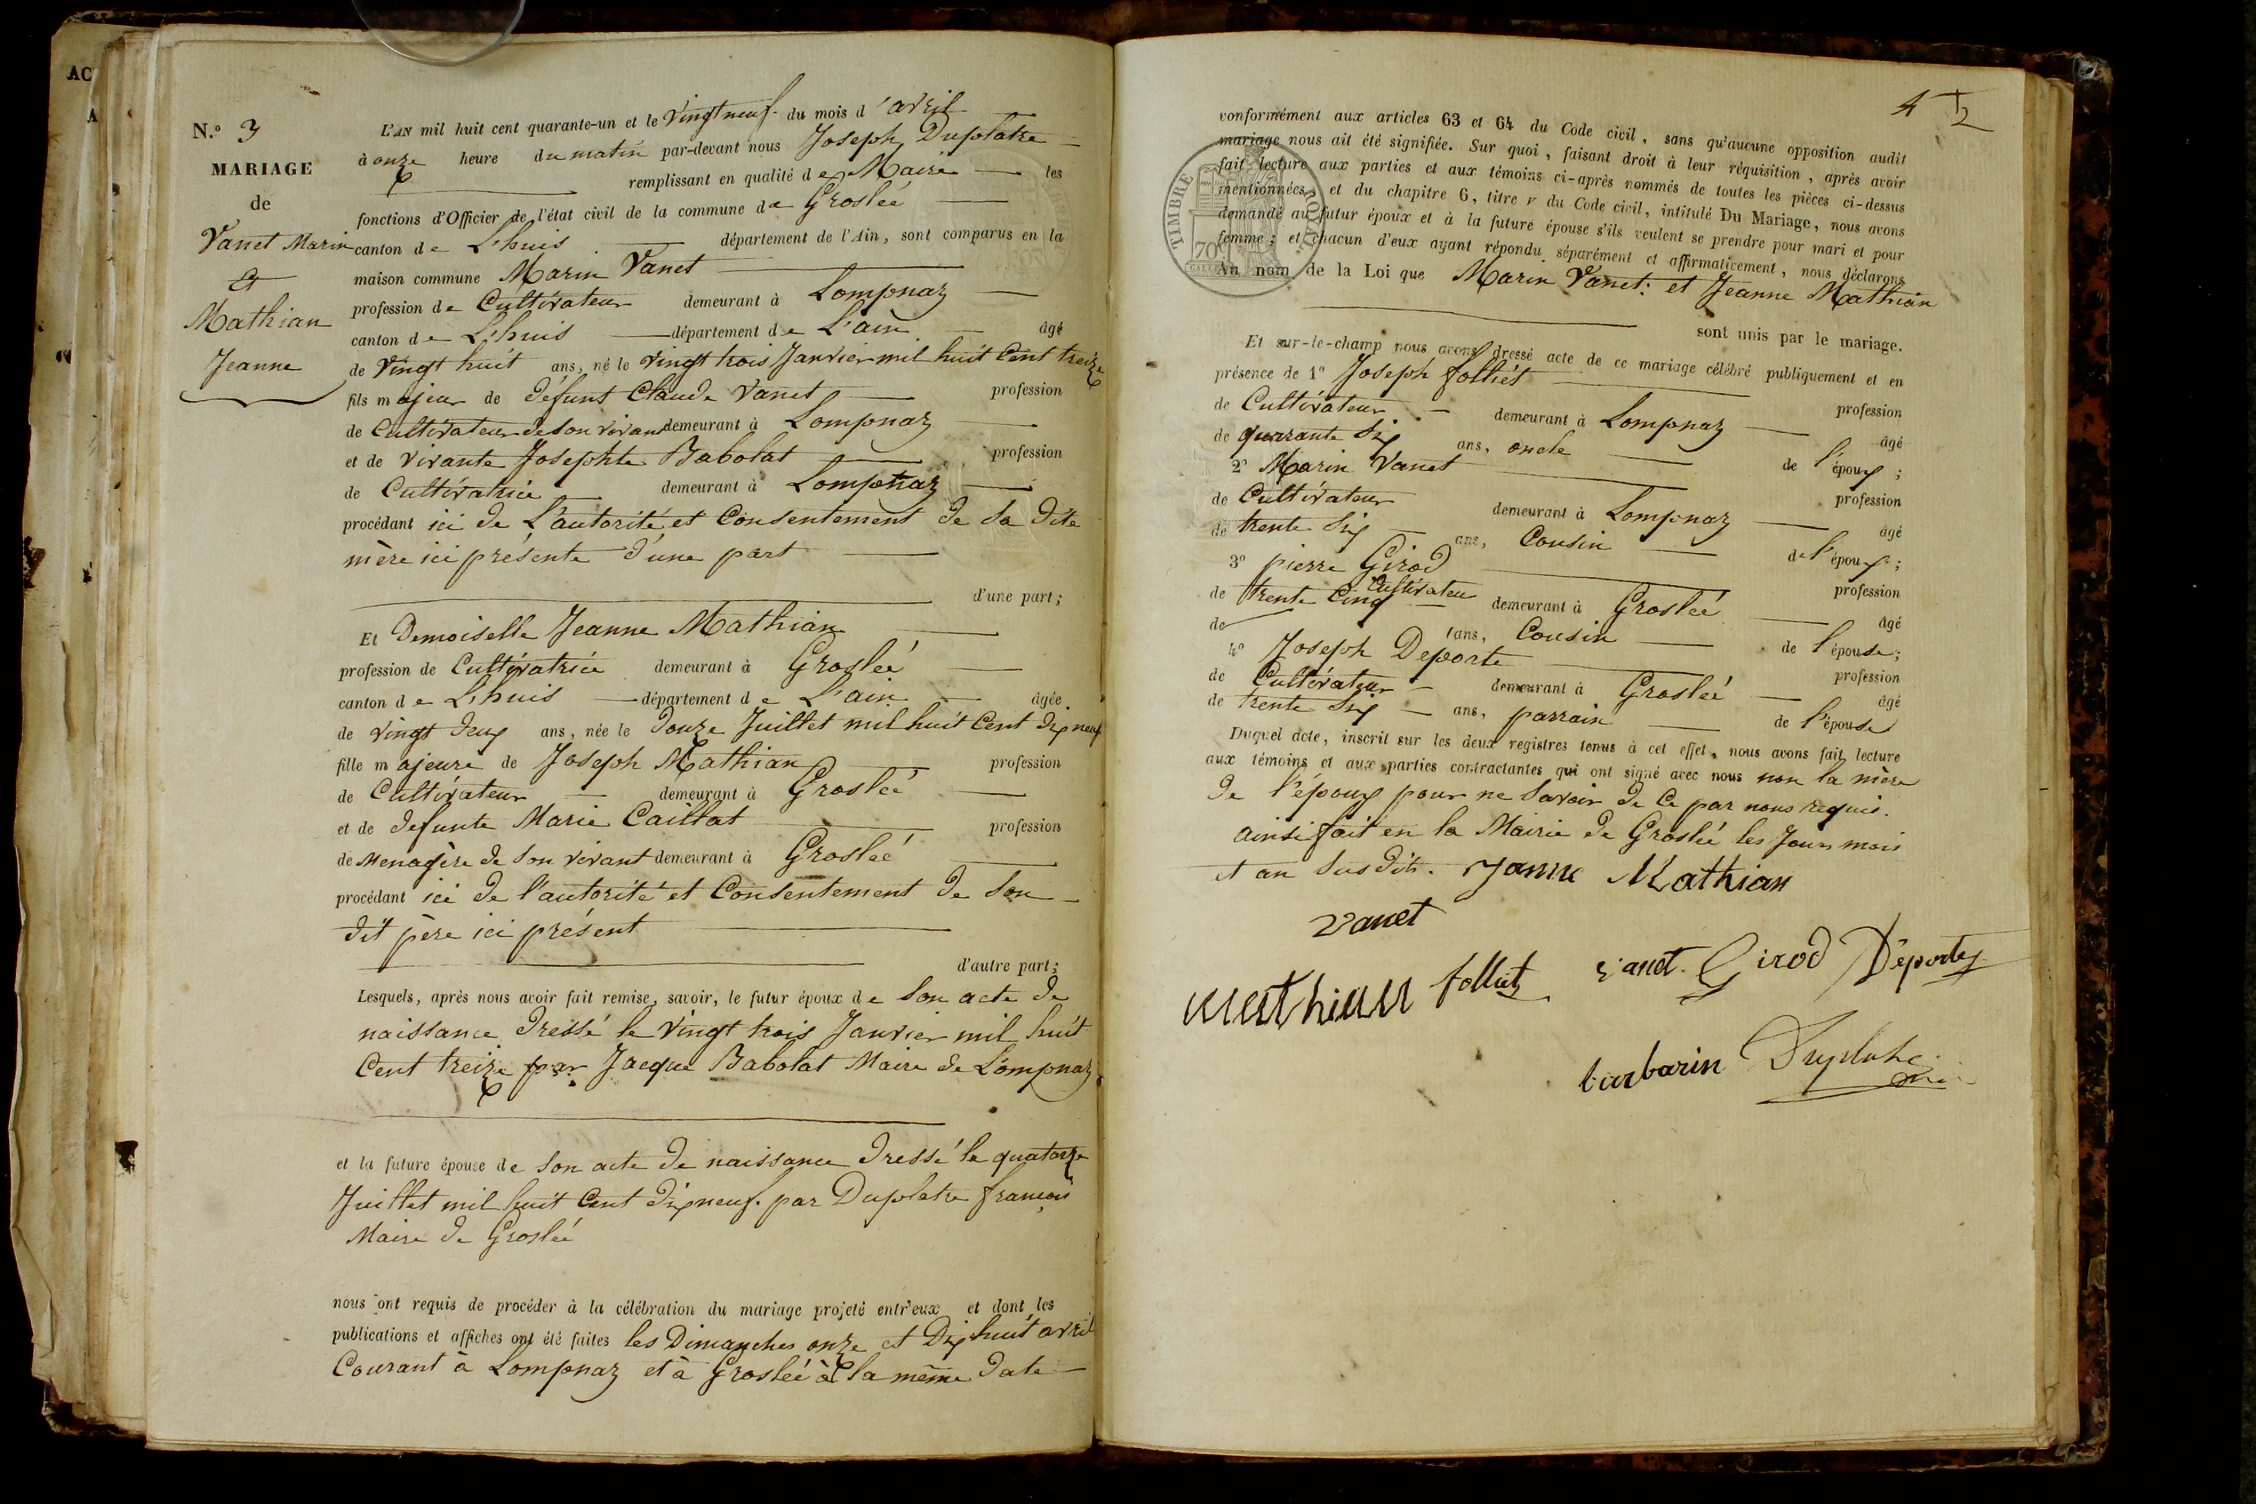 AC
A
N.º 3
MARIAGE
de
Vanet Marin
et
Mathian
Jeanne
L'AN mil huit cent quarante-un et le vingt neuf du mois d'avril
à onze heure du matin par-devant nous Joseph Duplatre
remplissant en qualité de Maire les
fonctions d'Officier de l'état civil de la commune de Groslée
canton de L'huis département de l'Ain, sont comparus en la
maison commune Marin Vanet
profession de Cultivateur demeurant à Lompnaz
canton de L'huis département de L'ain âgé
de vingt huit ans, né le vingt trois Janvier mil huit Cent treize
fils majeur de défunt Claude Vanet profession
de Cultivateur de son vivant demeurant à Lompnaz
et de vivante Josephte Babolat profession
de Cultivatrice demeurant à Lompnaz
procédant ici de L'autorité et Consentement de Sa dite
mère ici présente d'une part
d'une part;
Et Demoiselle Jeanne Mathian
profession de Cultivatrice demeurant à Groslée
canton de L'huis département de L'ain âgée
de vingt deux ans, née le douze Juillet mil huit Cent dix neuf
fille majeure de Joseph Mathian profession
de Cultivateur demeurant à Groslée
et de defunte Marie Caillat profession
de Menagère de son vivant demeurant à Groslée
procédant ici de l'autorité et Consentement de Son
dit père ici présent
d'autre part;
Lesquels, après nous avoir fait remise, savoir, le futur époux de Son acte de
naissance dressé le vingt trois Janvier mil huit
Cent treize par Jacque Babolat Maire de Lompnaz
et la future épouse de Son acte de naissance dressé le quatorze
Juillet mil huit Cent dix neuf par Duplatre françois
Maire de Groslée
nous ont requis de procéder à la célébration du mariage projeté entr'eux et dont les
publications et affiches ont été faites les Dimanches onze et Dix huit avril
Courant à Lompnaz et à Groslée à la même date
4 1/2
conformément aux articles 63 et 64 du Code civil, sans qu'aucune opposition audit
mariage nous ait été signifiée. Sur quoi, faisant droit à leur réquisition, après avoir
fait lecture aux parties et aux témoins ci-après nommés de toutes les pièces ci-dessus
mentionnées, et du chapitre 6, titre v du Code civil, intitulé Du Mariage, nous avons
demandé au futur époux et à la future épouse s'ils veulent se prendre pour mari et pour
femme; et chacun d'eux ayant répondu séparément et affirmativement, nous déclarons
TIMBRE ROYAL
70c
Au nom de la Loi que Marin Vanet et Jeanne Mathian
sont unis par le mariage.
Et sur-le-champ nous avons dressé acte de ce mariage célébré publiquement et en
présence de 1º Joseph folliet profession
de Cultivateur demeurant à Lompnaz âgé
de quarante Six ans, oncle de l'époux;
2º Marin Vanet profession
de Cultivateur demeurant à Lompnaz âgé
de trente Six ans, Cousin de l'époux;
3º pierre Girod profession
de trente Cinq Cultivateur demeurant à Groslée âgé
de ans, Cousin de l'épouse;
4º Joseph Deporte profession
de Cultivateur demeurant à Groslée âgé
de trente Six ans, parrain de l'épouse
Duquel acte, inscrit sur les deux registres tenus à cet effet, nous avons fait lecture
aux témoins et aux parties contractantes qui ont signé avec nous non la mère
de l'époux pour ne Savoir de Ce par nous requis.
ainsi fait en la Mairie de Groslée les Jours mois
et an Susdits. Janne Mathian
Vanet
Mathian folliet Vanet Girod Déportes
barbarin Duplatre